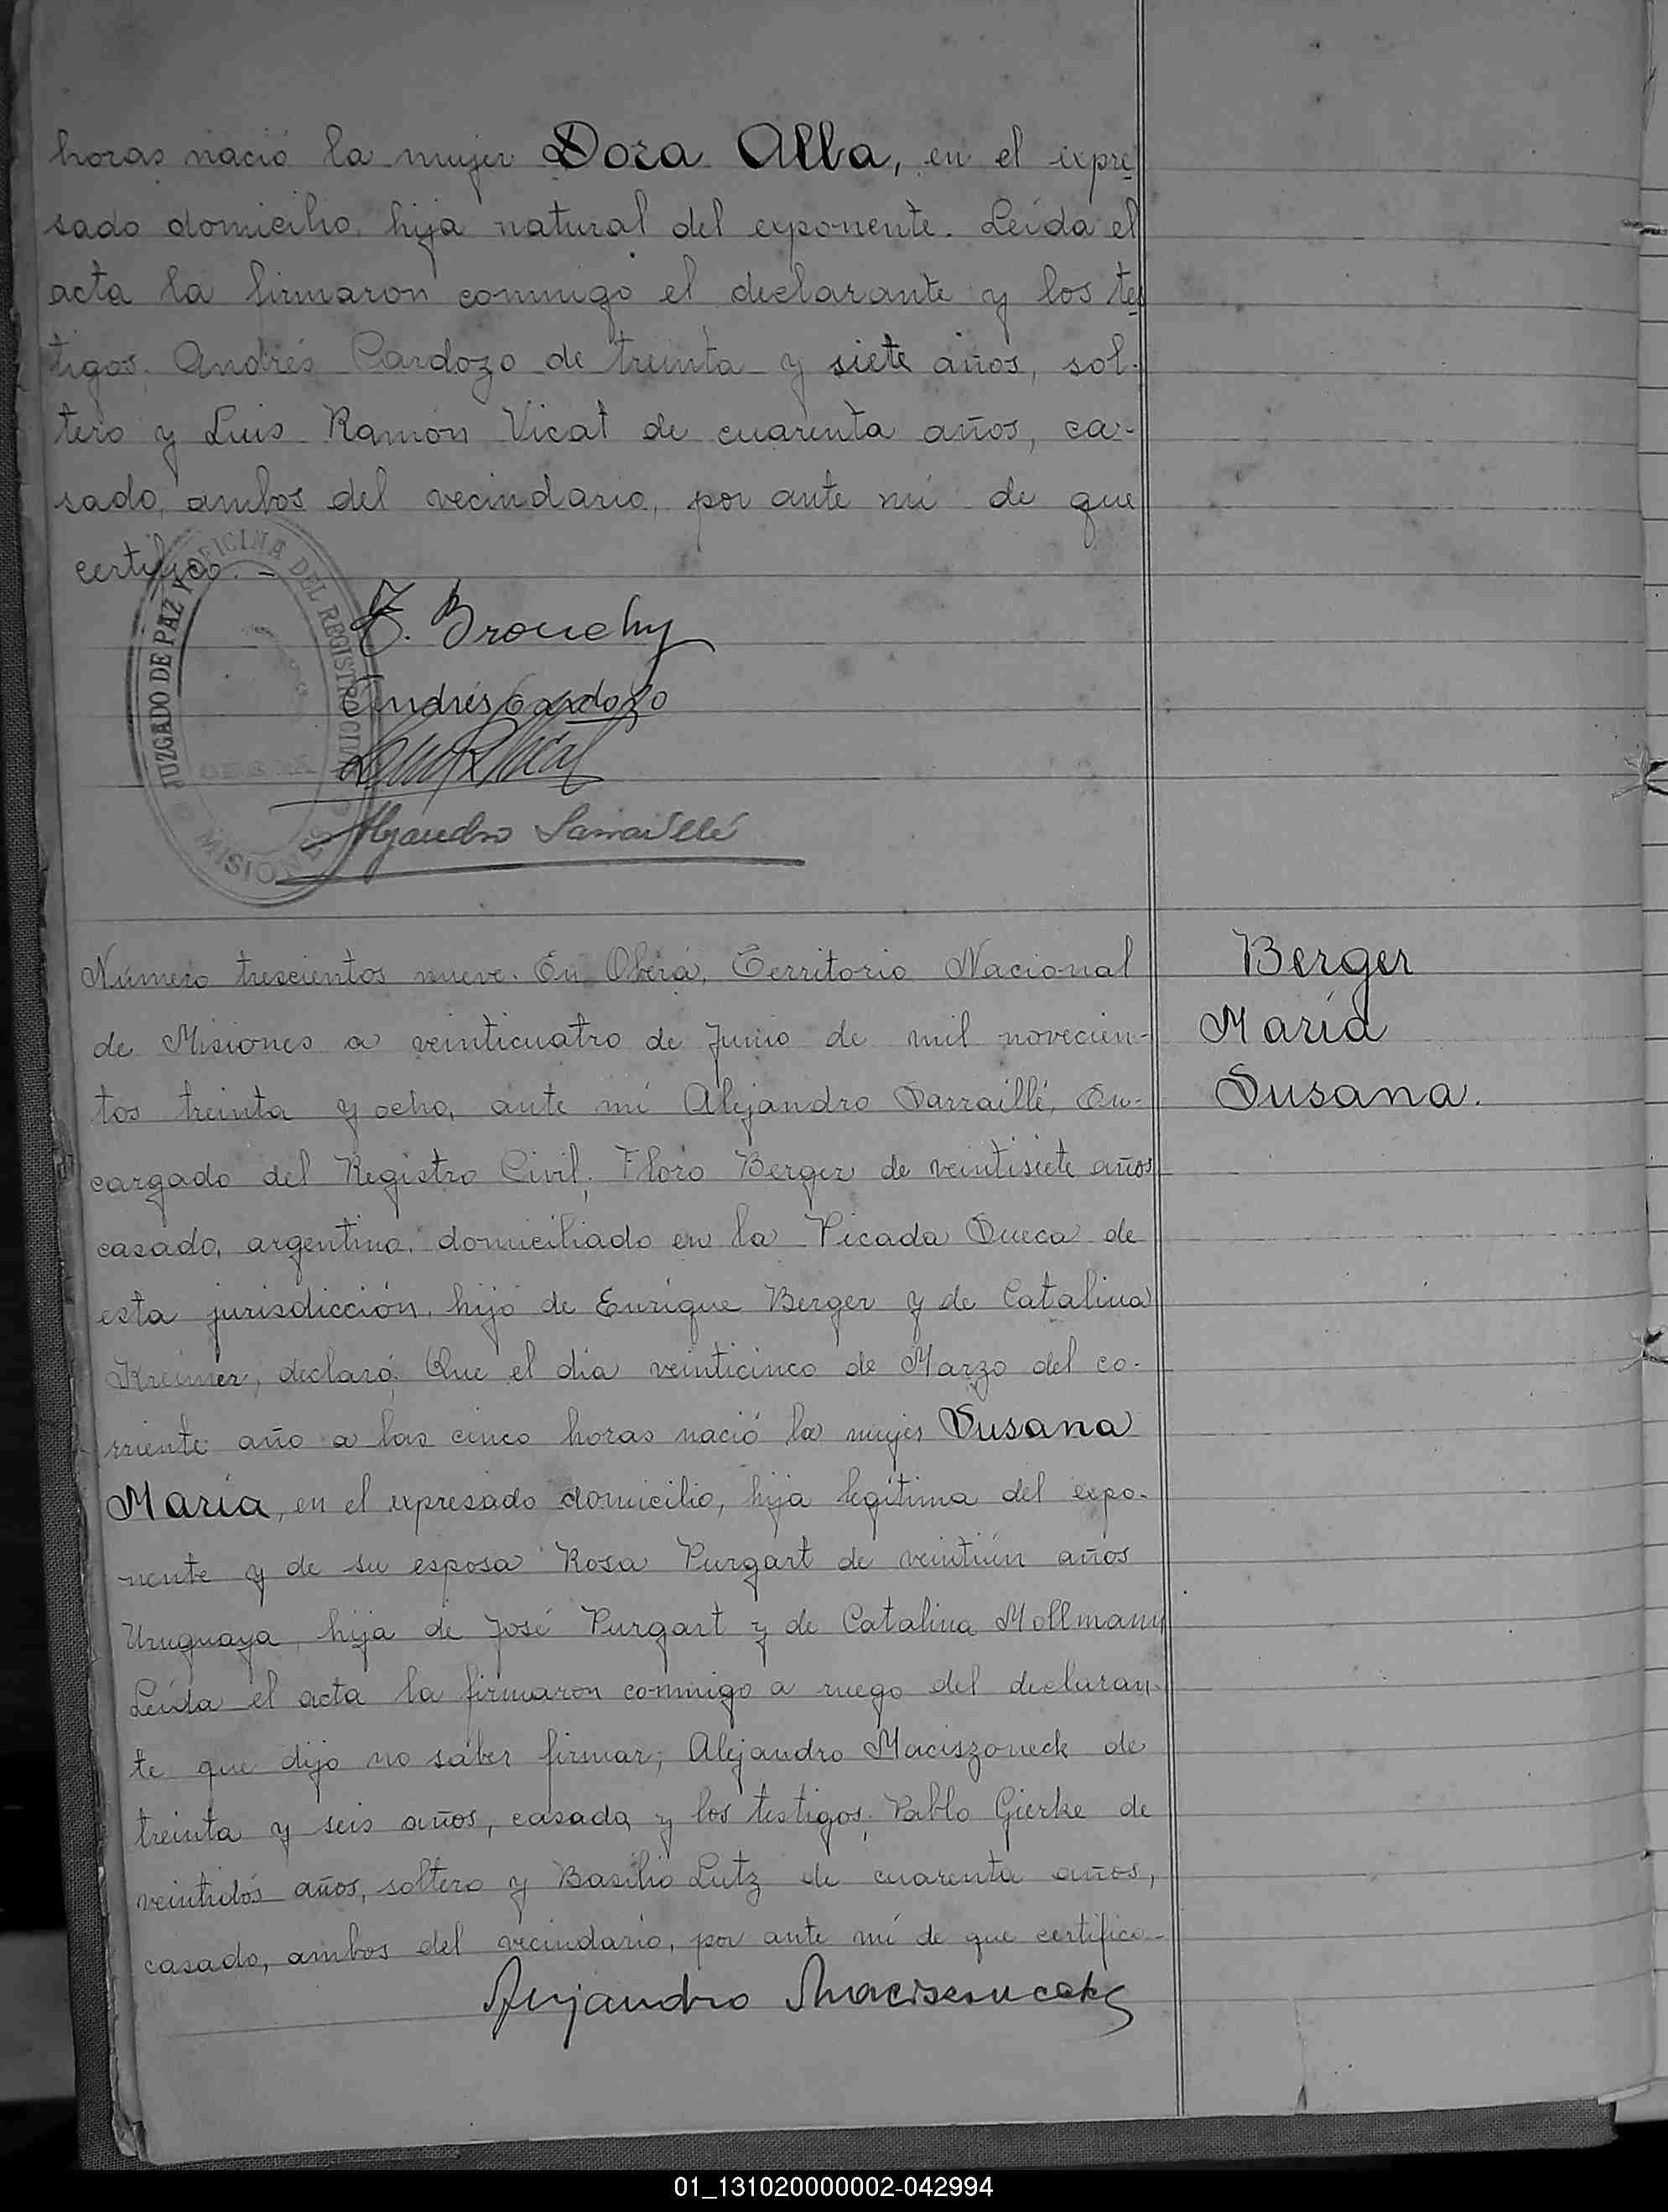 horas nació la mujer Dora Alba, en el expre
sado domicilio, hija natural del exponente. Leída el
acta la firmaron conmigo el declarante y los tes
tigos. Andrés Cardozo de treinta y siete años, sol-
tero y Luis Ramón Vicat de cuarenta años, ca-
sado, ambos del vecindario, por ante mí de que
certifico. -
JUZGADO DE PAZ Y OFICINA DEL REGISTRO CIVIL
MISIONES
Andrés Cardozo
Alejandro Sarraillé
Número trescientos nueve. En Oberá, Territorio Nacional
de Misiones a veinticuatro de Junio de mil novecien-
tos treinta y ocho, ante mí Alejandro Sarraillé, En-
cargado del Registro Civil; Floro Berger de veintisiete años
casado, argentino, domiciliado en la Picada Sueca de
esta jurisdicción, hijo de Enrique Berger y de Catalina
Kreimer, declaró: Que el día veinticinco de Marzo del co-
rriente año a las cinco horas nació la mujer Susana
María, en el expresado domicilio, hija legítima del expo-
nente y de su esposa Rosa Purgart de veintiún años
Uruguaya, hija de José Purgart y de Catalina Mollmann
Leída el acta la firmaron conmigo a ruego del declaran-
te que dijo no saber firmar; Alejandro Maciszoneck de
treinta y seis años, casado, y los testigos; Pablo Gierke de
veintidós años, soltero y Basilio Lutz de cuarenta años,
casado, ambos del vecindario, por ante mí de que certifico-
Berger
María
Susana.
01_131020000002-042994